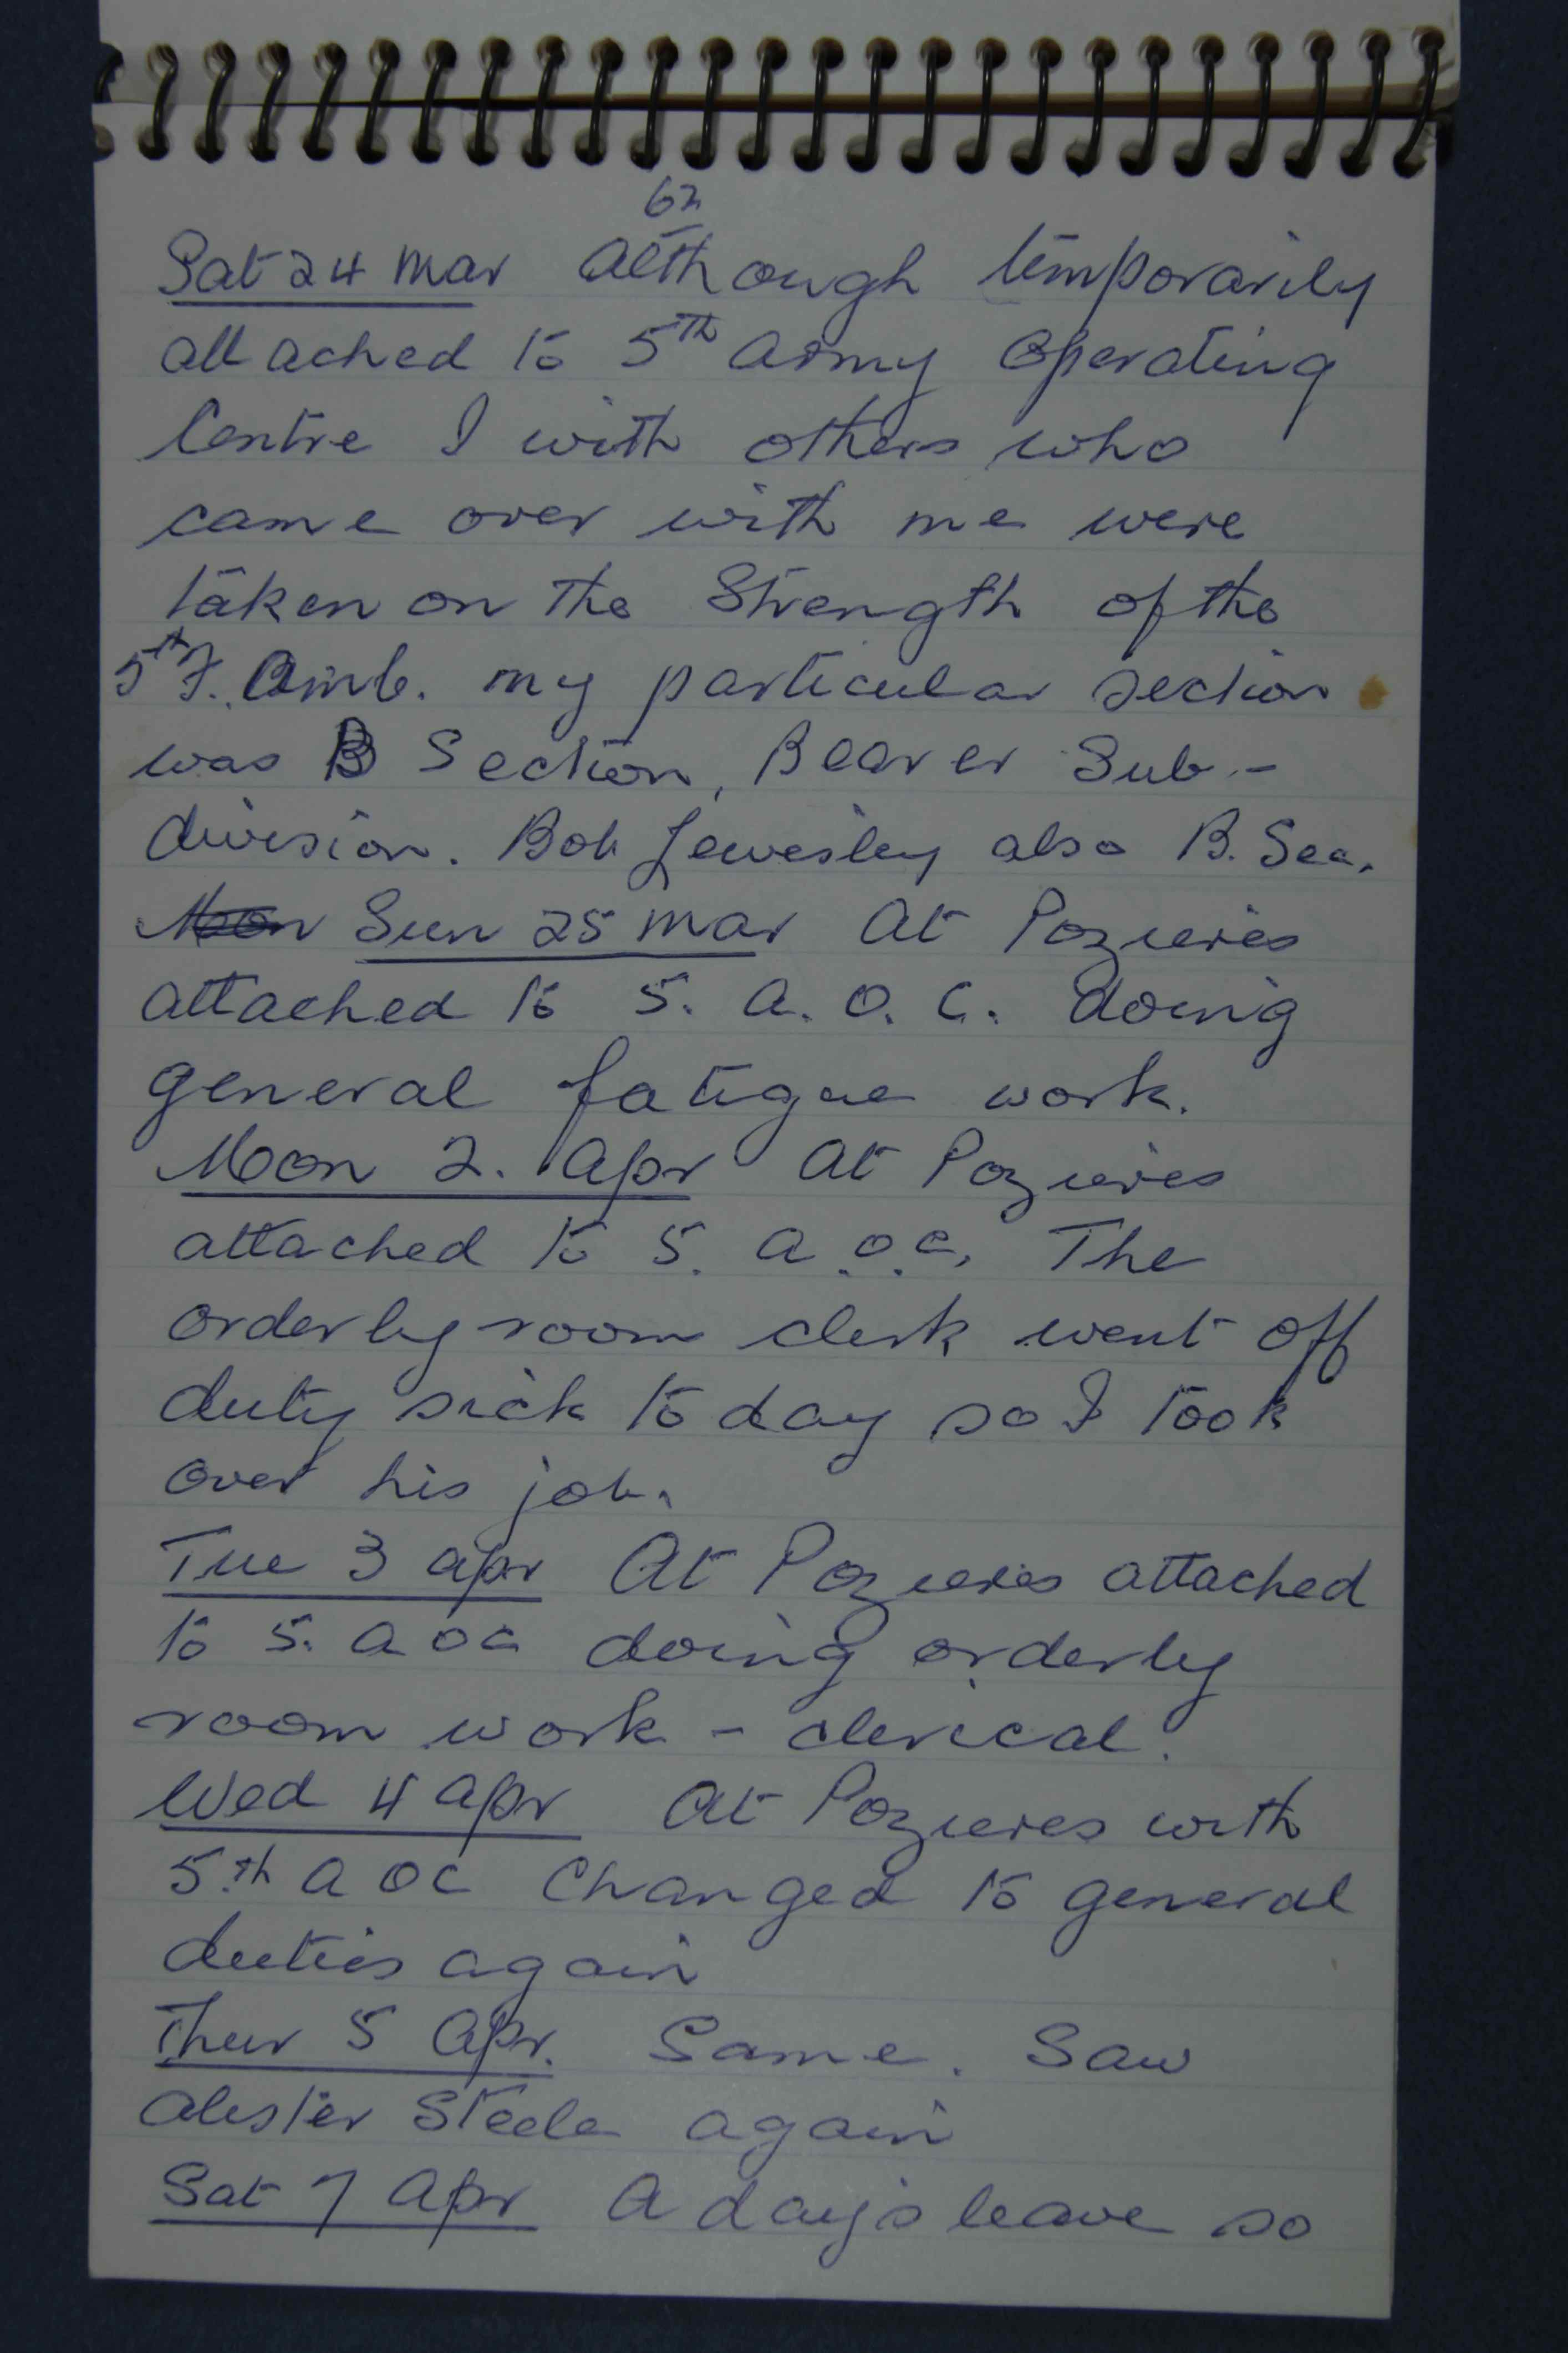 62
Sat 24 Mar Although temporarily
attached to 5th Army Operating
Centre I with others who
came over with me were
taken on the Strength of the
5th F. Amb. my particular section
was B Section, Bearer Sub-
division. Bob Lewesley also B. Sec.
Mon Sun 25 Mar At Pozieres
attached to 5. A. O. C. doing
general fatigue work.
Mon 2. Apr At Pozieres
attached to 5. A.O.C. The
orderly room clerk went off
duty sick to day so I took
over his job.
Tue 3 Apr At Pozieres attached
to 5. A O C doing orderly
room work - clerical.
Wed 4 Apr At Pozieres with
5th A O C Changed to general
duties again
Thur 5 Apr. Same. Saw
Alester Steele again
Sat 7 Apr A day's leave so